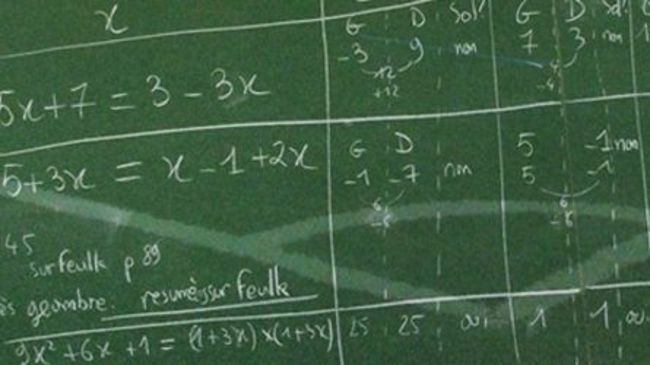 x G D Sol! G D
-3 9 non 7 3 non
+12 -4
+12 -4
5x+7 = 3 - 3x
G D 5 -1 non
5+3x = x - 1 + 2x -1 -7 non 5 -1
6 6
-6 -6
45
sur feuille p 89
resumé sur feuille
9x² + 6x + 1 = (1+3x)x(1+3x) 25 25 oui 1 1 oui